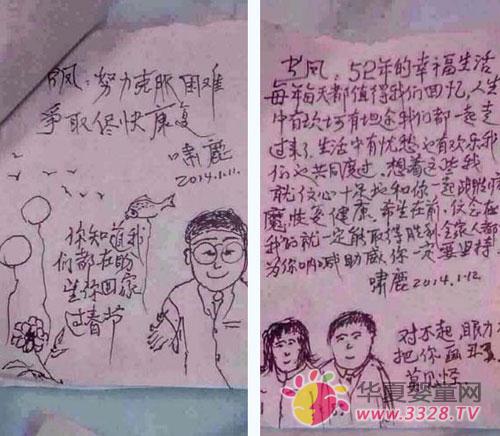 凤：努力克服困难
争取侭快康复
啸鹿
2014.1.11.
你知道我
们都在盼
望你回家
过春节
凤：52年的幸福生活
每年每天都值得我们回忆，人生
中有坎坷有坦途我们都一起走
过来了，生活中有忧愁也有欢乐我
们也共同度过，想着这些我
就信心十足地和你一起战胜病
魔恢复健康 希望在前，信念在
我们就一定能取得胜利全家人都
为你呐喊助威你一定要坚持
啸鹿 2014.1.12
对不起 眼力
把你画丑了
莫见怪
华夏婴童网
www.3328.TV